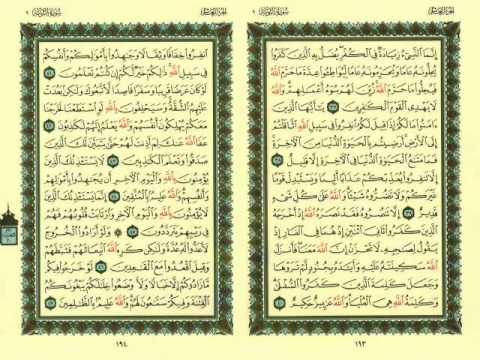 الجزء العاشر
سورة التوبة ٩
إِنَّمَا النَّسِيءُ زِيَادَةٌ فِي الْكُفْرِ يُضَلُّ بِهِ الَّذِينَ كَفَرُوا
يُحِلُّونَهُ عَامًا وَيُحَرِّمُونَهُ عَامًا لِيُوَاطِئُوا عِدَّةَ مَا حَرَّمَ اللَّهُ
فَيُحِلُّوا مَا حَرَّمَ اللَّهُ زُيِّنَ لَهُمْ سُوءُ أَعْمَالِهِمْ وَاللَّهُ
لَا يَهْدِي الْقَوْمَ الْكَافِرِينَ ٣٧ يَا أَيُّهَا الَّذِينَ
ءَامَنُوا مَا لَكُمْ إِذَا قِيلَ لَكُمُ انْفِرُوا فِي سَبِيلِ اللَّهِ اثَّاقَلْتُمْ
إِلَى الْأَرْضِ أَرَضِيتُمْ بِالْحَيَاةِ الدُّنْيَا مِنَ الْآخِرَةِ
فَمَا مَتَاعُ الْحَيَاةِ الدُّنْيَا فِي الْآخِرَةِ إِلَّا قَلِيلٌ ٣٨
إِلَّا تَنْفِرُوا يُعَذِّبْكُمْ عَذَابًا أَلِيمًا وَيَسْتَبْدِلْ قَوْمًا
غَيْرَكُمْ وَلَا تَضُرُّوهُ شَيْئًا وَاللَّهُ عَلَى كُلِّ شَيْءٍ
قَدِيرٌ ٣٩ إِلَّا تَنْصُرُوهُ فَقَدْ نَصَرَهُ اللَّهُ إِذْ أَخْرَجَهُ
الَّذِينَ كَفَرُوا ثَانِيَ اثْنَيْنِ إِذْ هُمَا فِي الْغَارِ إِذْ
يَقُولُ لِصَاحِبِهِ لَا تَحْزَنْ إِنَّ اللَّهَ مَعَنَا فَأَنْزَلَ
اللَّهُ سَكِينَتَهُ عَلَيْهِ وَأَيَّدَهُ بِجُنُودٍ لَمْ تَرَوْهَا
وَجَعَلَ كَلِمَةَ الَّذِينَ كَفَرُوا السُّفْلَى
وَكَلِمَةُ اللَّهِ هِيَ الْعُلْيَا وَاللَّهُ عَزِيزٌ حَكِيمٌ ٤٠
١٩٣
الجزء العاشر
سورة التوبة ٩
انْفِرُوا خِفَافًا وَثِقَالًا وَجَاهِدُوا بِأَمْوَالِكُمْ وَأَنْفُسِكُمْ
فِي سَبِيلِ اللَّهِ ذَلِكُمْ خَيْرٌ لَكُمْ إِنْ كُنْتُمْ تَعْلَمُونَ ٤١
لَوْ كَانَ عَرَضًا قَرِيبًا وَسَفَرًا قَاصِدًا لَاتَّبَعُوكَ وَلَكِنْ بَعُدَتْ
عَلَيْهِمُ الشُّقَّةُ وَسَيَحْلِفُونَ بِاللَّهِ لَوِ اسْتَطَعْنَا لَخَرَجْنَا
مَعَكُمْ يُهْلِكُونَ أَنْفُسَهُمْ وَاللَّهُ يَعْلَمُ إِنَّهُمْ لَكَاذِبُونَ ٤٢
عَفَا اللَّهُ عَنْكَ لِمَ أَذِنْتَ لَهُمْ حَتَّى يَتَبَيَّنَ لَكَ الَّذِينَ
صَدَقُوا وَتَعْلَمَ الْكَاذِبِينَ ٤٣ لَا يَسْتَأْذِنُكَ الَّذِينَ
يُؤْمِنُونَ بِاللَّهِ وَالْيَوْمِ الْآخِرِ أَنْ يُجَاهِدُوا بِأَمْوَالِهِمْ
وَأَنْفُسِهِمْ وَاللَّهُ عَلِيمٌ بِالْمُتَّقِينَ ٤٤ إِنَّمَا يَسْتَأْذِنُكَ الَّذِينَ
لَا يُؤْمِنُونَ بِاللَّهِ وَالْيَوْمِ الْآخِرِ وَارْتَابَتْ قُلُوبُهُمْ فَهُمْ
فِي رَيْبِهِمْ يَتَرَدَّدُونَ ٤٥ وَلَوْ أَرَادُوا الْخُرُوجَ
لَأَعَدُّوا لَهُ عُدَّةً وَلَكِنْ كَرِهَ اللَّهُ انْبِعَاثَهُمْ فَثَبَّطَهُمْ
وَقِيلَ اقْعُدُوا مَعَ الْقَاعِدِينَ ٤٦ لَوْ خَرَجُوا فِيكُمْ
مَا زَادُوكُمْ إِلَّا خَبَالًا وَلَأَوْضَعُوا خِلَالَكُمْ يَبْغُونَكُمُ
الْفِتْنَةَ وَفِيكُمْ سَمَّاعُونَ لَهُمْ وَاللَّهُ عَلِيمٌ بِالظَّالِمِينَ ٤٧
١٩٤